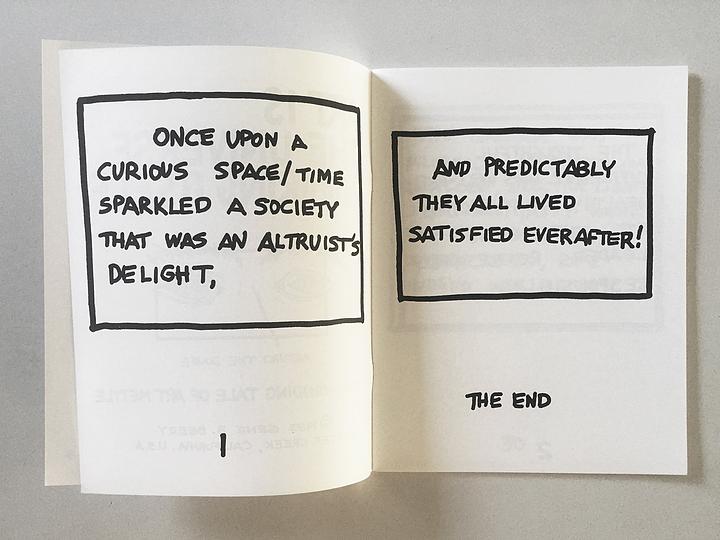 ONCE UPON A
CURIOUS SPACE/TIME
SPARKLED A SOCIETY
THAT WAS AN ALTRUIST'S
DELIGHT,
1
AND PREDICTABLY
THEY ALL LIVED
SATISFIED EVER AFTER!
THE END